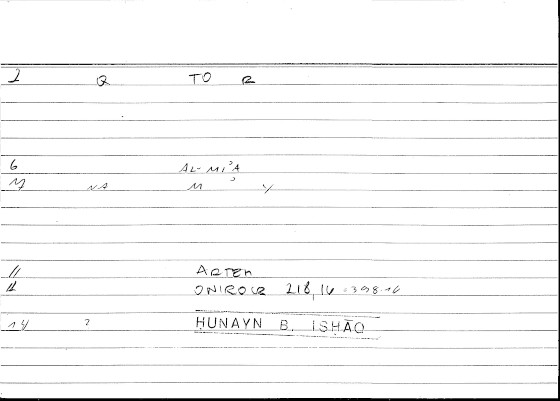 1 Q TO R
6 AL-MI'A
M NA M ' Y
11 ARTEM
12 ONIROCR 218,16 = 398.16
14 ? HUNAYN B. ISHĀQ